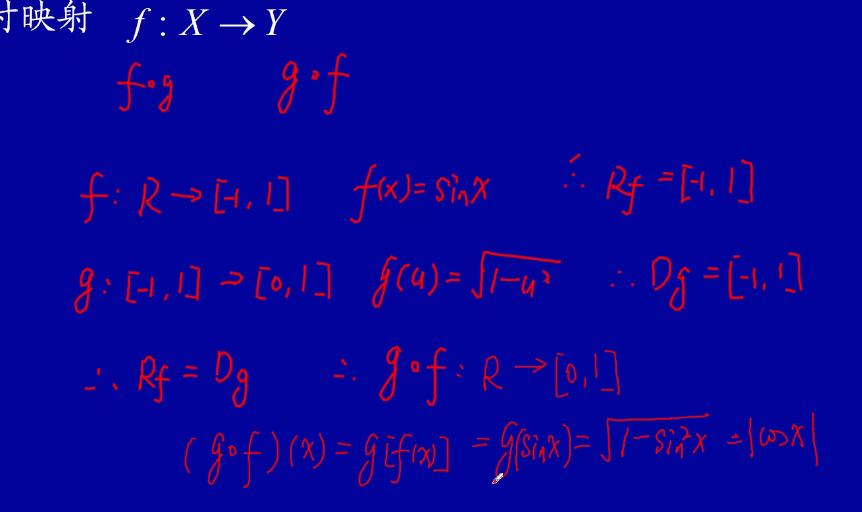 对映射 f : X → Y
f∘g g∘f
f: R → [-1, 1] f(x) = sinx ∴ Rf = [-1, 1]
g: [-1, 1] → [0, 1] g(u) = √(1-u²) ∴ Dg = [-1, 1]
∴ Rf = Dg ∴ g∘f : R → [0, 1]
(g∘f)(x) = g[f(x)] = g(sinx) = √(1-sin²x) = |cosx|